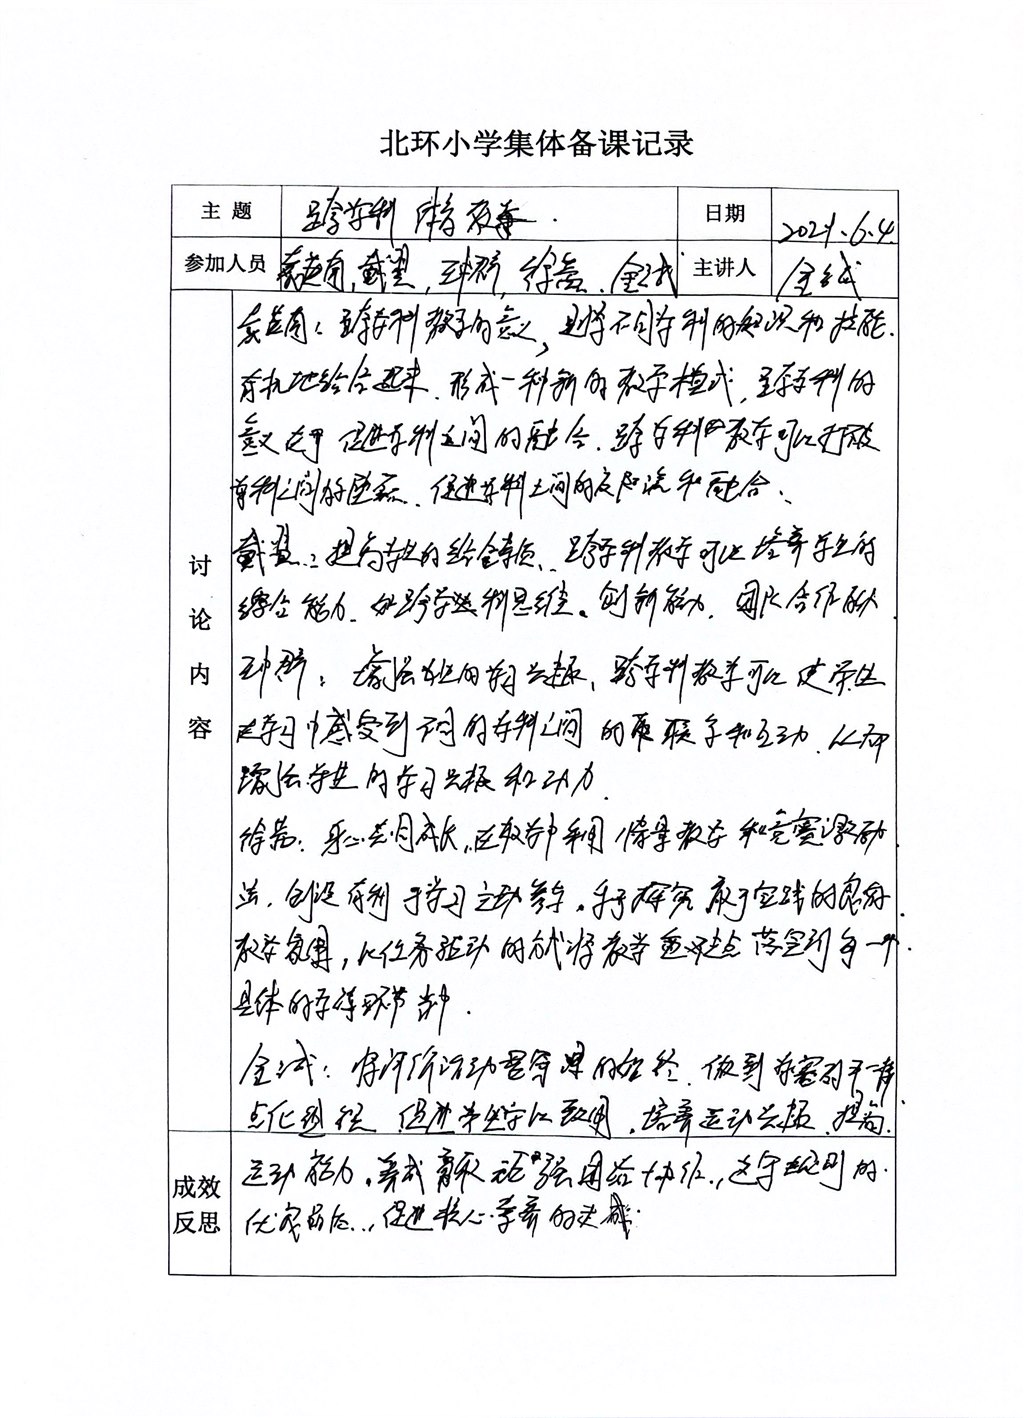 北环小学集体备课记录
主 题 跨学科 体育 教案. 日期 2024.6.4
参加人员 戴望, 徐 主讲人
跨学科教学的意义, 是将不同学科的知识和技能.
有机地结合起来. 形成一种新的教学模式, 跨学科的
意义在于 促进学科之间的融合. 跨学科的教学可以打破
学科之间的壁垒. 促进学科之间的交流和融合、
戴望: 提高学生的综合素质、跨学科教学可以培养学生的
综合能力. 如跨学科思维。创新能力. 团队合作能力
: 增强学生的学习兴趣、跨学科教学可以使学生
在学习中感受到不同的学科之间的联系和互动. 从而
增强学生的学习兴趣和动力.
徐: 身心共同成长, 在教学中利用情景教学和竞赛激励
法. 创设有利于学习主动参与. 乐于探究 敢于实践的良好
教学氛围, 以任务驱动的方式将教学重难点落实到每一个
具体的学练环节当中.
: 将评价活动贯穿课的始终. 做到
点化 促进学生学以致用. 培养运动兴趣. 提高.
讨论内容
成效反思
运动能力. 养成 团结协作., 遵守规则的.
优良品质.., 促进核心素养的达成.